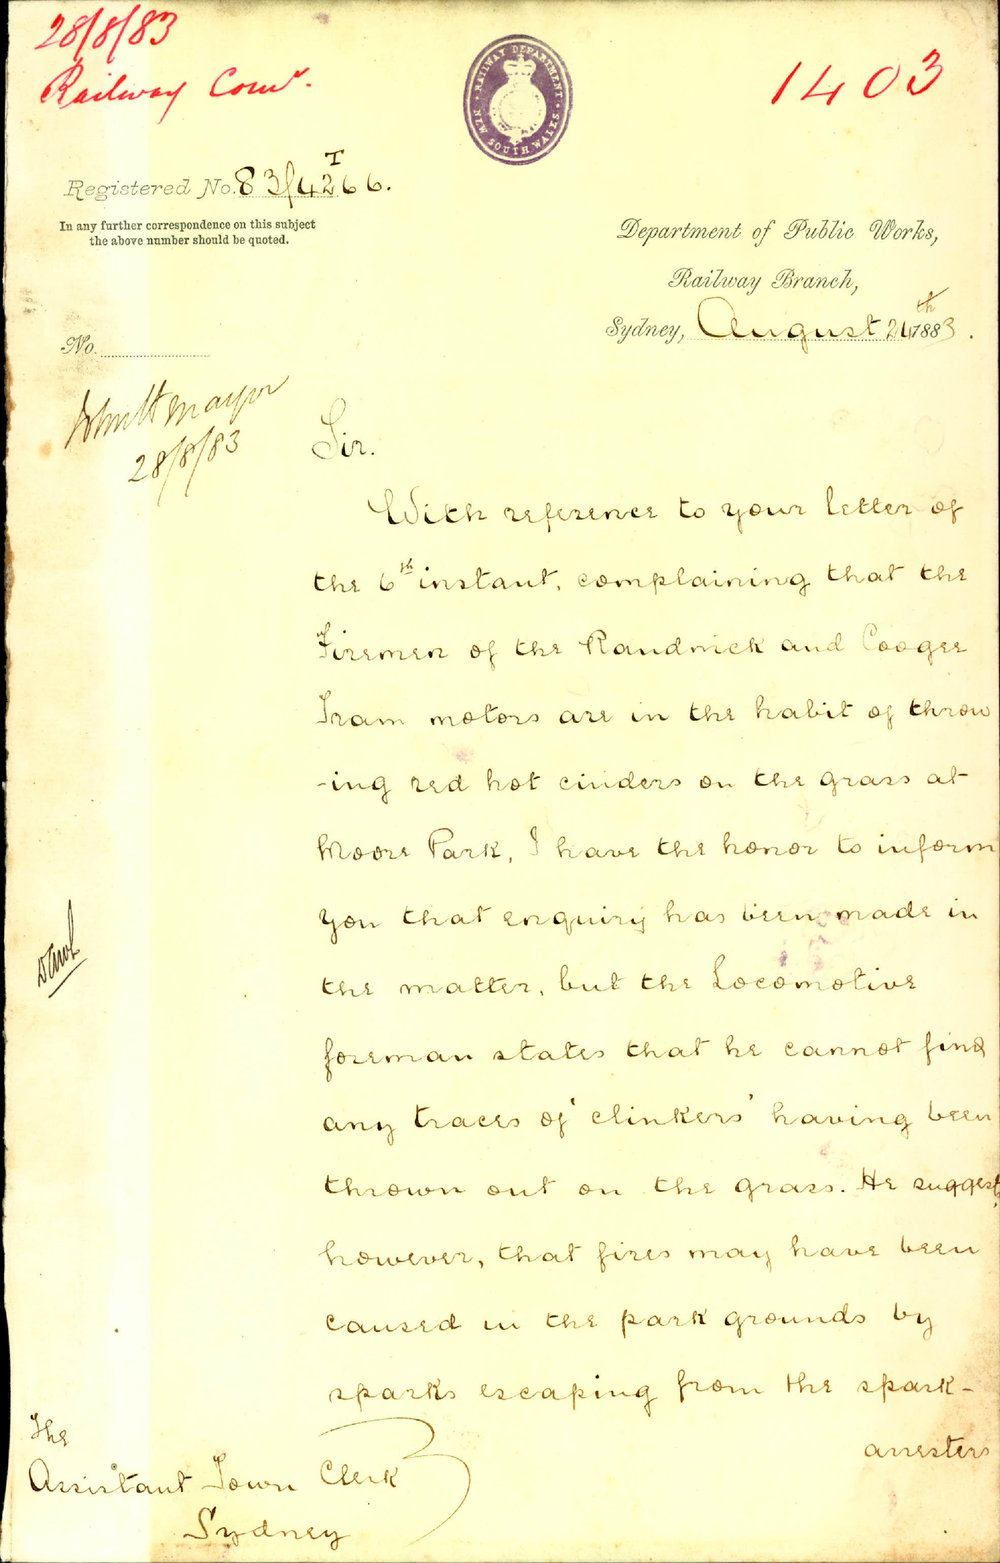 28/8/83
Railway Comr.
1403
RAILWAY DEPARTMENT
NEW SOUTH WALES
T
Registered No. 83/4266.
In any further correspondence on this subject
the above number should be quoted.
Department of Public Works,
Railway Branch,
Sydney, August 24th 1883.
No.
Mayor
28/8/83
Sir.
With reference to your letter of
the 6th instant, complaining that the
Firemen of the Randwick and Coogee
Tram motors are in the habit of throw
-ing red hot cinders on the grass at
Moore Park, I have the honor to inform
you that enquiry has been made in
the matter, but the Locomotive
foreman states that he cannot find
any traces of 'clinkers' having been
thrown out on the grass. He suggests,
however, that fires may have been
caused in the park grounds by
sparks escaping from the spark-
arresters
The
Assistant Town Clerk
Sydney